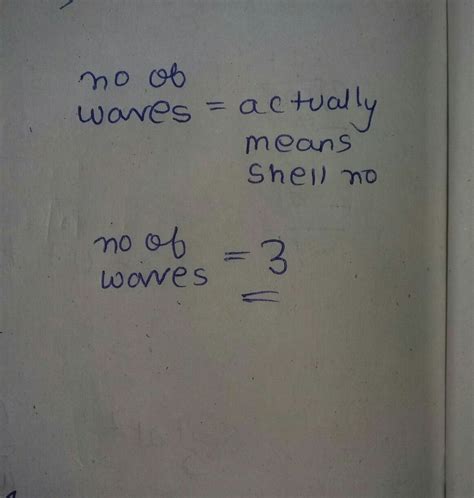 no of
waves = actually
means
shell no
no of
waves = 3